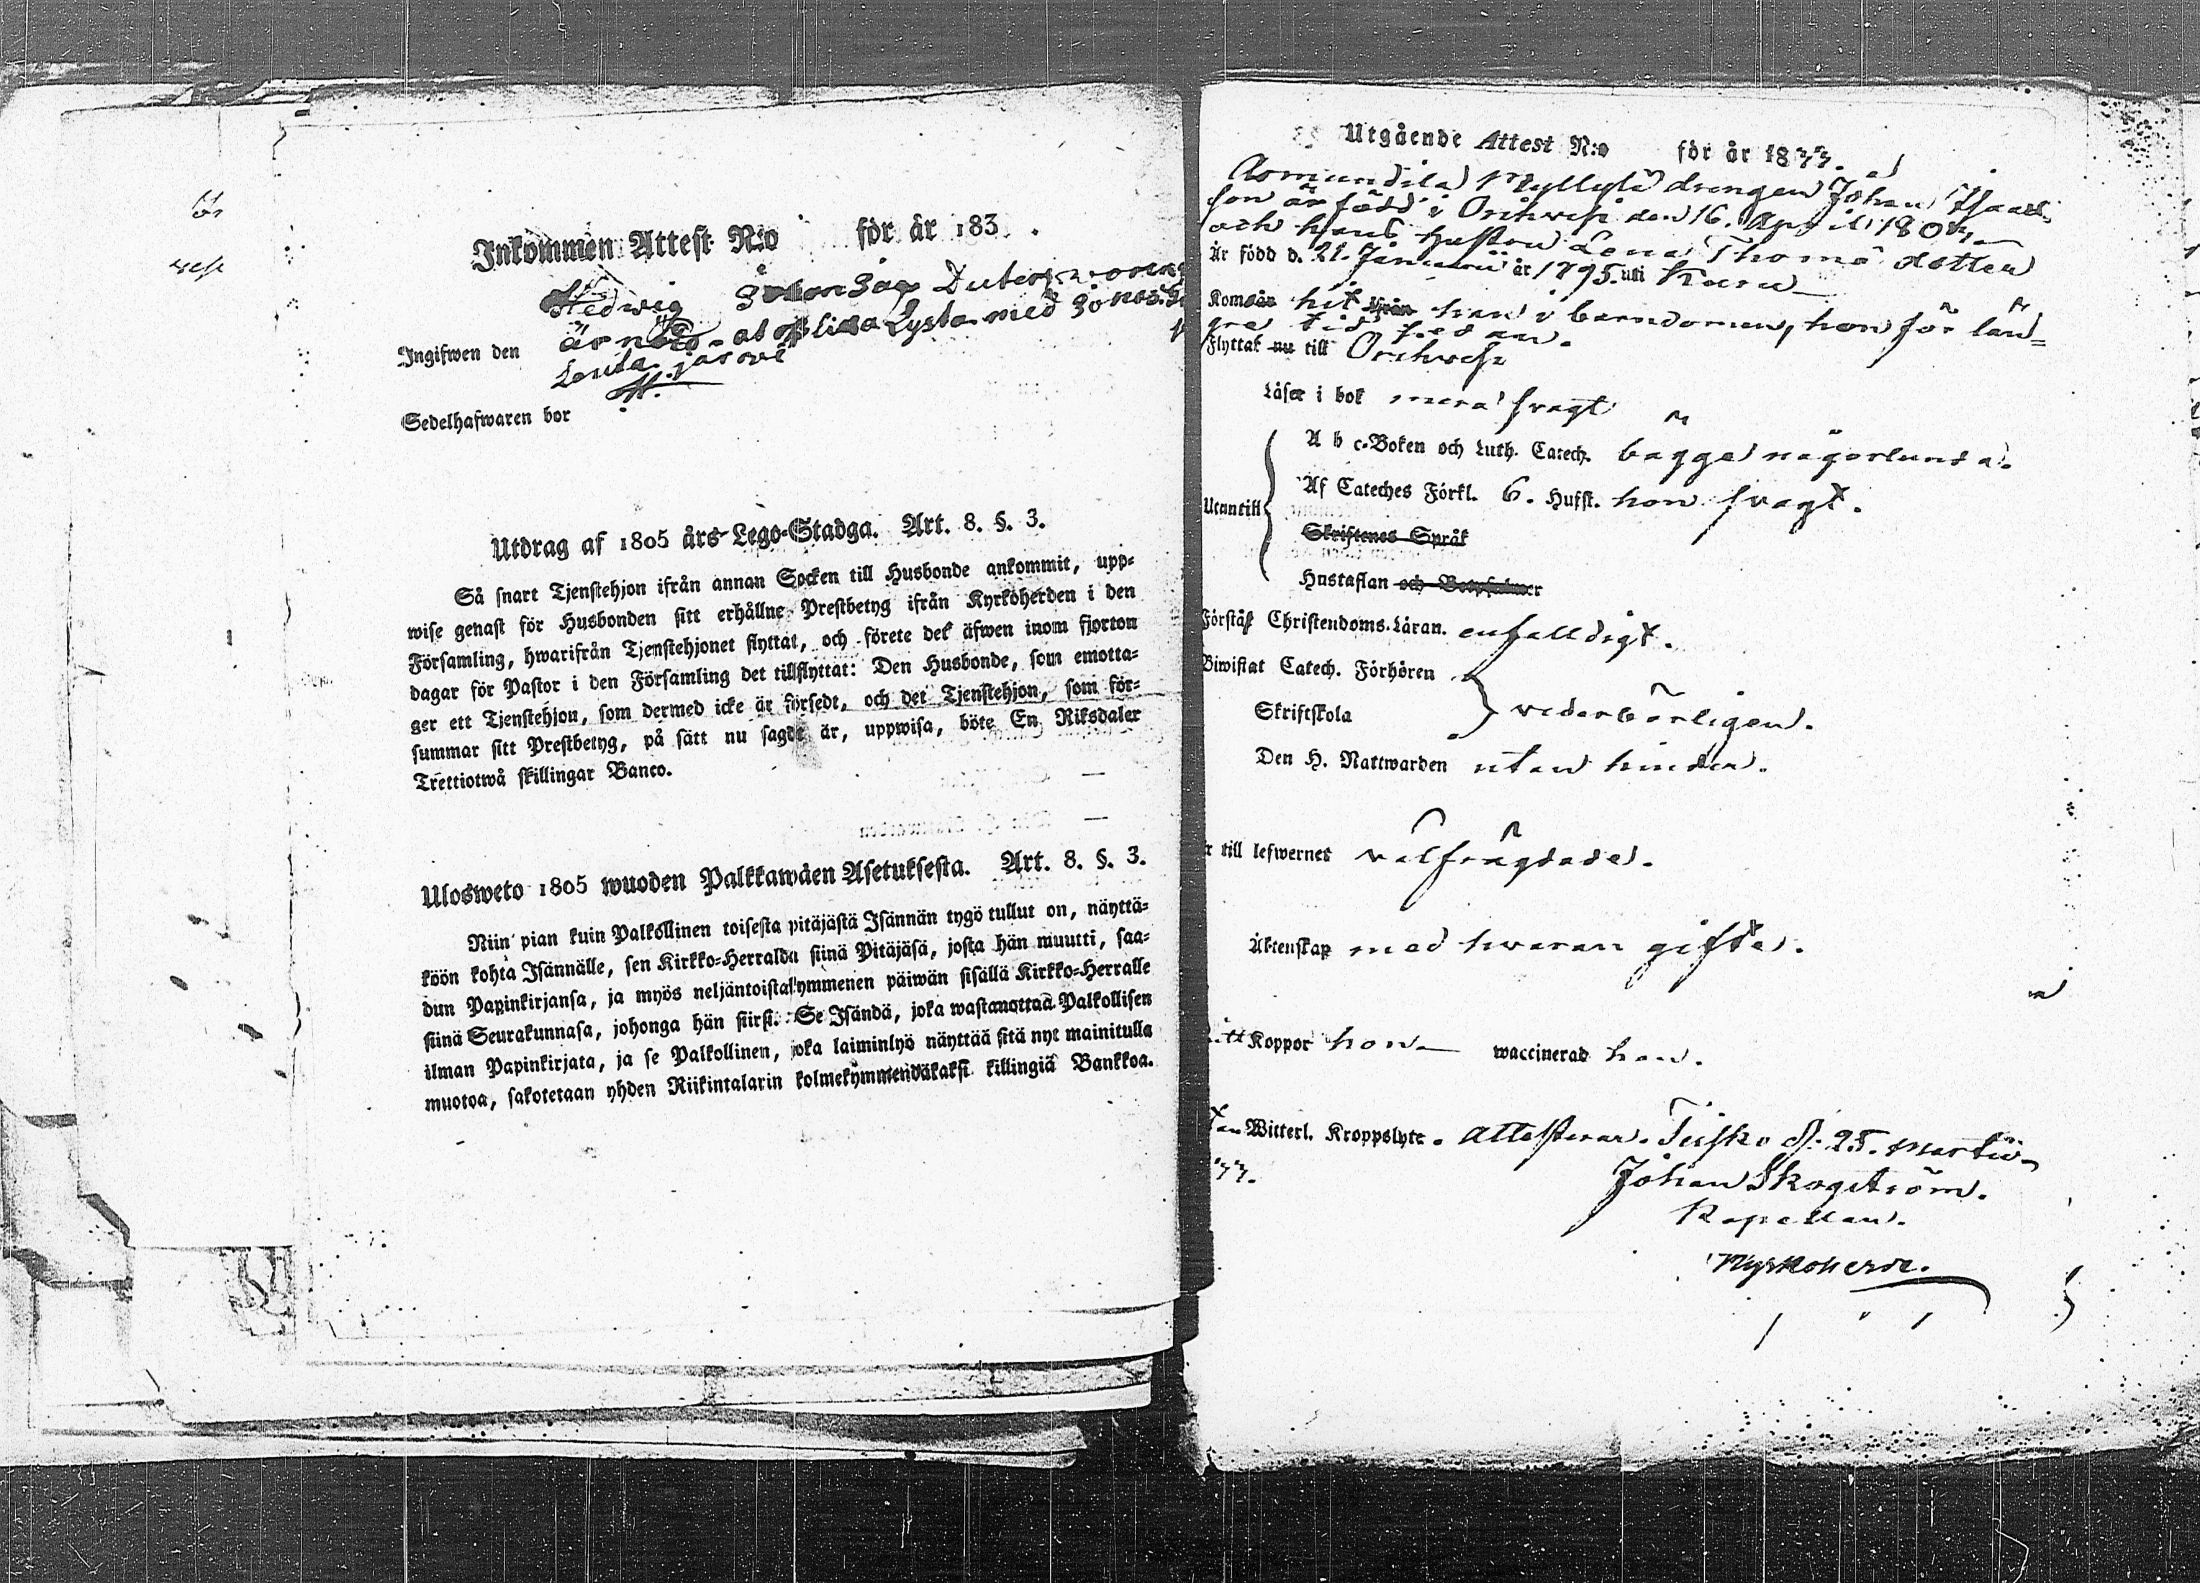 Inkommen Attest N:o för år 183 .
Hedwig
är
Ingifwen den
Sedelhafwaren bor
Utdrag af 1805 års Lego-Stadga. Art. 8. §. 3.
Så snart Tjenstehjon ifrån annan Socken till Husbonde ankommit, upp-
wise genast för Husbonden sitt erhållne Prestbetyg ifrån Kyrkoherden i den
Församling, hwarifrån Tjenstehjonet flyttat, och förete det äfwen inom fjorton
dagar för Pastor i den Församling det tillflyttat: Den Husbonde, som emotta-
ger ett Tjenstehjon, som dermed icke är försedt, och det Tjenstehjon, som för-
summar sitt Prestbetyg, på sätt nu sagdt är, uppwisa, böte En Riksdaler
Trettiotwå skillingar Banco.
Ulosweto 1805 wuoden Palkkawäen Asetuksesta. Art. 8. §. 3.
Niin pian kuin Palkollinen toisesta pitäjästä Isännän tygö tullut on, näyttä-
köön kohta Isännälle, sen Kirkko-Herralda siinä Pitäjäsä, josta hän muutti, saa-
dun Papinkirjansa, ja myös neljäntoistakymmenen päiwän sisällä Kirkko-Herralle
siinä Seurakunnasa, johonga hän siirsi. Se Isändä, joka wastanottaa Palkollisen
ilman Papinkirjata, ja se Palkollinen, joka laiminlyö näyttää sitä nyt mainitulla
muotoa, sakotetaan yhden Riikintalarin kolmekymmendäkaksi killingiä Bankkoa.
Utgående Attest N:o för år 1833.
Myllylä drengen Johan Isaacs
son är född i Orihvesi den 16. April 180
och hans hustru Lena Thomæ dotter
Är född d. 21. Januarii år 1795. uti Kuru
Komsån hit ifrån han i barndomen, hon för län=
gre tid sedan.
Flyttat nu till Orihvesi
Läser i bok mera svagt
A b c-Boken och Luth. Catech. bägge någorlunda.
Af Cateches Förkl. 6. Hufst. hon svagt.
Utantill
Skriftenes Språk
Hustaflan och Botpsalmer
Förstår Christendoms-Läran. enfalldigt.
Biwistat Catech. Förhören
Skriftskola vederbörligen.
Den H. Nattwarden utan hinder.
r till lefwernet välfrägdade.
Äktenskap med hvaran gifta.
Koppor hon waccinerad han.
Witterl. Kroppslyte. attesterar. Teisko d. 25. Martii
33.
Johan Skogström.
Kapellan.